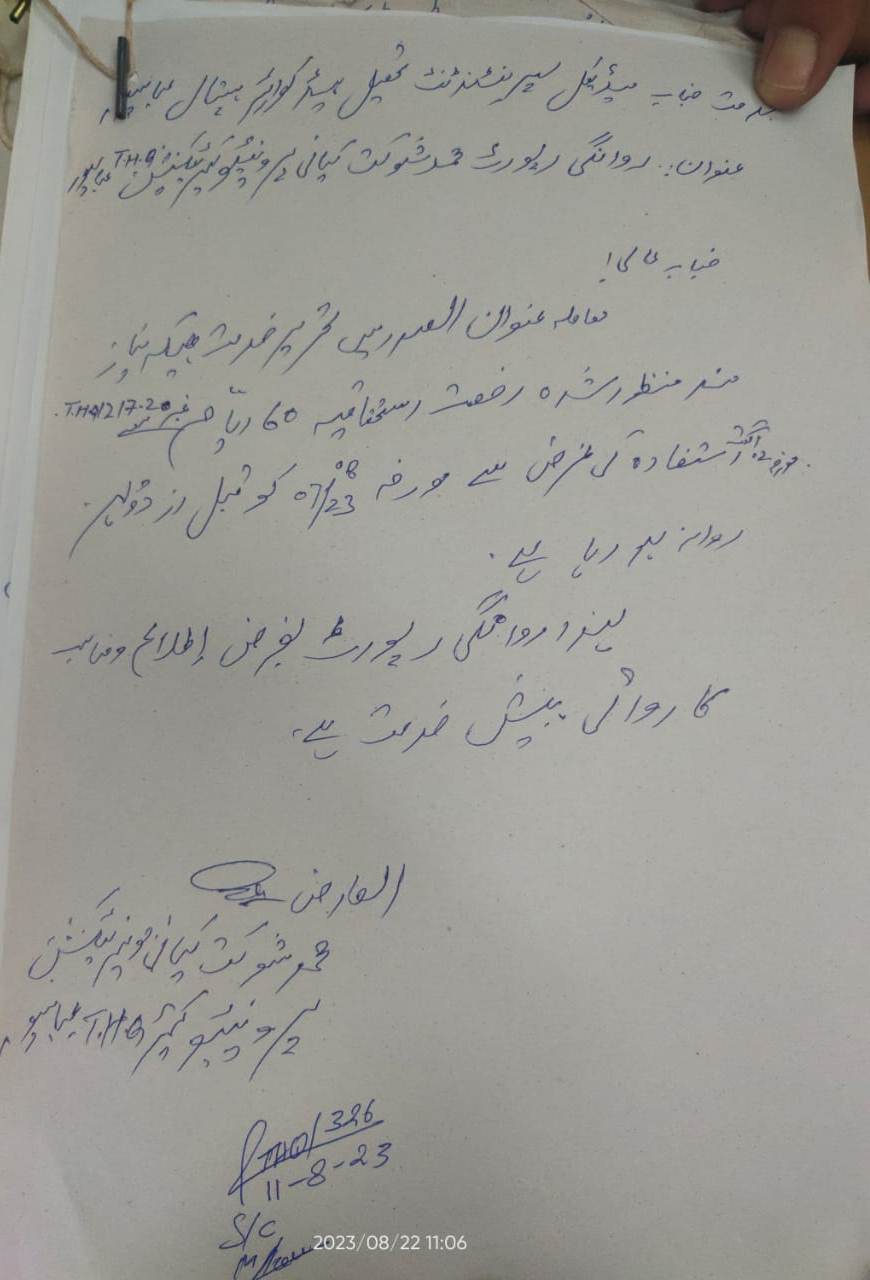 بخدمت جناب میڈیکل سپرنٹنڈنٹ تحصیل ہیڈ کوارٹر ہسپتال عباسپور
عنوان:۔ روانگی رپورٹ محمد شوکت کیانی پریونٹیو کیئر ٹیکنیشن T.H.Q عباسپور
جناب عالی!
معاملہ عنوان الصدر میں تحریر خدمت ہیکہ نیاز
مند منظور شدہ رخصت استحقاقیہ 60 ایام نمبر THQ/217-20
مورخہ استفادہ کی غرض سے مورخہ 07/08/23 کو قبل از دوپہر
روانہ ہو رہا ہے۔
لہذا روانگی رپورٹ بغرض اطلاع ومناسب
کاروائی پیش خدمت ہے۔
العارض
محمد شوکت کیانی جونیر ٹیکنیشن
پریونٹیو کیئر T.H.Q عباسپور
THQ/326
11-8-23
S/C
2023/08/22 11:06